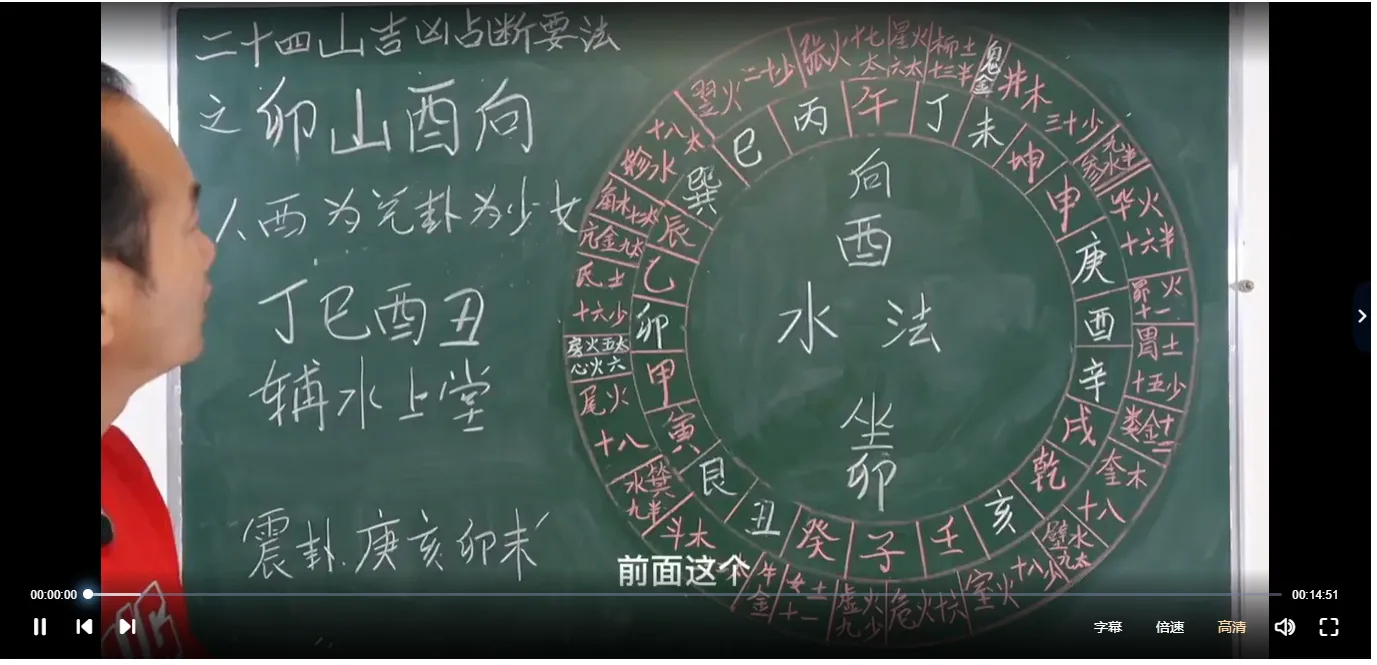 二十四山吉凶占断要法
之卯山酉向
八、酉为兑卦为少女
丁巳酉丑
辅水上堂
震卦庚亥卯未
向
酉
水法
坐
卯
午
丁
未
坤
申
庚
酉
辛
戌
乾
亥
壬
子
癸
丑
艮
寅
甲
卯
乙
辰
巽
巳
丙
张火十七太
星火六太
柳土十三半
鬼金
井木三十少
参水
毕火十六半
昴火十一
胃土十五少
娄金十二
奎木十八
壁水九太
室火十八少
危火十六
虚火九少
女土十一
牛金
斗木
箕水九半
尾火十八
心火六
房火五太
氐土十六少
亢金九太
角木十二太
轸水十八太
翌火二十少
前面这个
00:00:00
00:14:51
字幕
倍速
高清